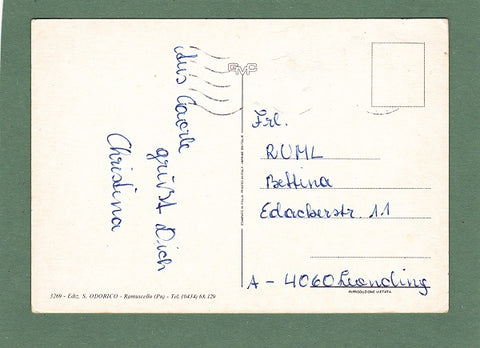 Aus Caorle
grüßt Dich
Christina
GMC
Frl.
RUML
Bettina
Edackerstr. 11
A - 4060 Leonding
3269 - Ediz. S. ODORICO - Ramuscello (Pn) - Tel. (0434) 68.129
RIPRODUZIONE VIETATA